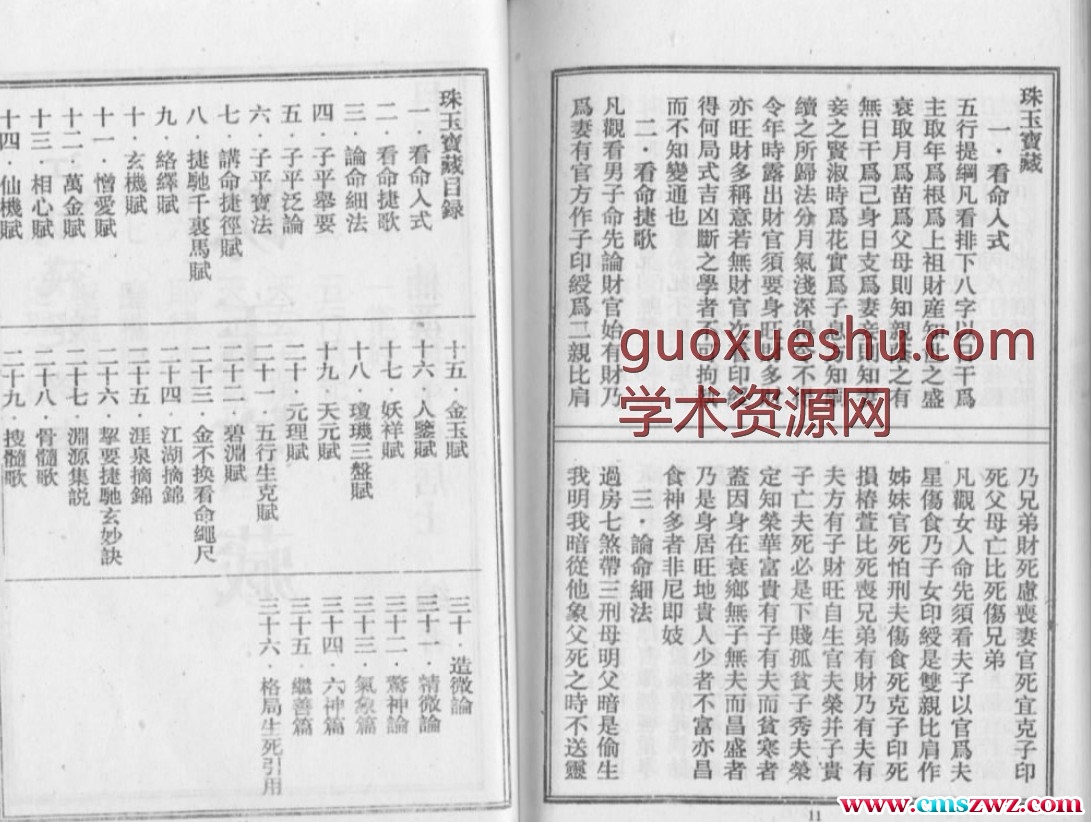 珠玉寶藏目録
一．看命入式
二．看命捷歌
三．論命細法
四．子平舉要
五．子平泛論
六．子平寶法
七．講命捷徑賦
八．捷馳千裏馬賦
九．絡繹賦
十．玄機賦
十一．憎愛賦
十二．萬金賦
十三．相心賦
十四．仙機賦
十五．金玉賦
十六．人鑒賦
十七．妖祥賦
十八．瓊璣三盤賦
十九．天元賦
二十．元理賦
二十一．五行生克賦
二十二．碧淵賦
二十三．金不換看命繩尺
二十四．江湖摘錦
二十五．涯泉摘錦
二十六．挈要捷馳玄妙訣
二十七．淵源集説
二十八．骨髓歌
二十九．搜髓歌
三十．造微論
三十一．精微論
三十二．驚神論
三十三．氣象篇
三十四．六神篇
三十五．繼善篇
三十六．格局生死引用
珠玉寶藏
一．看命入式
五行提綱凡看排下八字以日干爲
主取年爲根爲上祖財産知世之盛
衰取月爲苗爲父母則知親蔭之有
無日干爲己身日支爲妻妾則知妻
妾之賢淑時爲花實爲子息知嗣
續之所歸法分月氣淺深得令不得
令年時露出財官須要身旺
亦旺財多稱意若無財官次看印綬
得何局式吉凶斷之學者不可拘執
而不知變通也
二．看命捷歌
凡觀看男子命先論財官始有財乃
爲妻有官方作子印綬爲二親比肩
乃兄弟財死慮喪妻官死宜克子印
死父母亡比死傷兄弟
凡觀女人命先須看夫子以官爲夫
星傷食乃子女印綬是雙親比肩作
姊妹官死怕刑夫傷食死克子印死
損椿萱比死喪兄弟有財乃有夫有
夫方有子財旺自生官夫榮并子貴
子亡夫死必是下賤孤貧子秀夫榮
定知榮華富貴有子有夫而貧寒者
蓋因身在衰鄉無子無夫而昌盛者
乃是身居旺地貴人少者不富亦昌
食神多者非尼即妓
三．論命細法
過房七煞帶三刑母明父暗是偷生
我明我暗從他象父死之時不送靈
11
guoxueshu.com
学术资源网
www.cmszwz.com